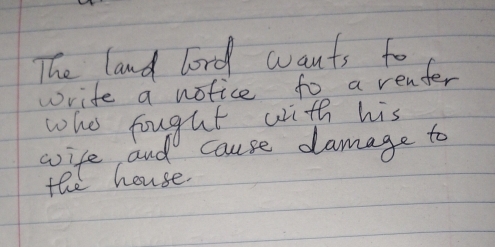 The land lord wants to
write a notice to a renter
who fought with his
wife and cause damage to
the house.